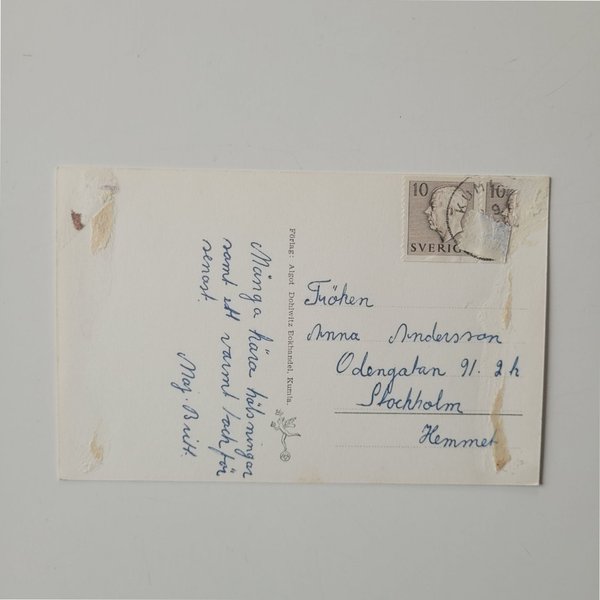 10
10
SVERIG
KUM
Många kära hälsningar
samt ett varmt tack för
senast.
Maj-Britt.
Förlag: Algot Dohlwitz Bokhandel, Kumla.
Fröken
Anna Andersson
Odengatan 91. 2 h
Stockholm
Hemmet